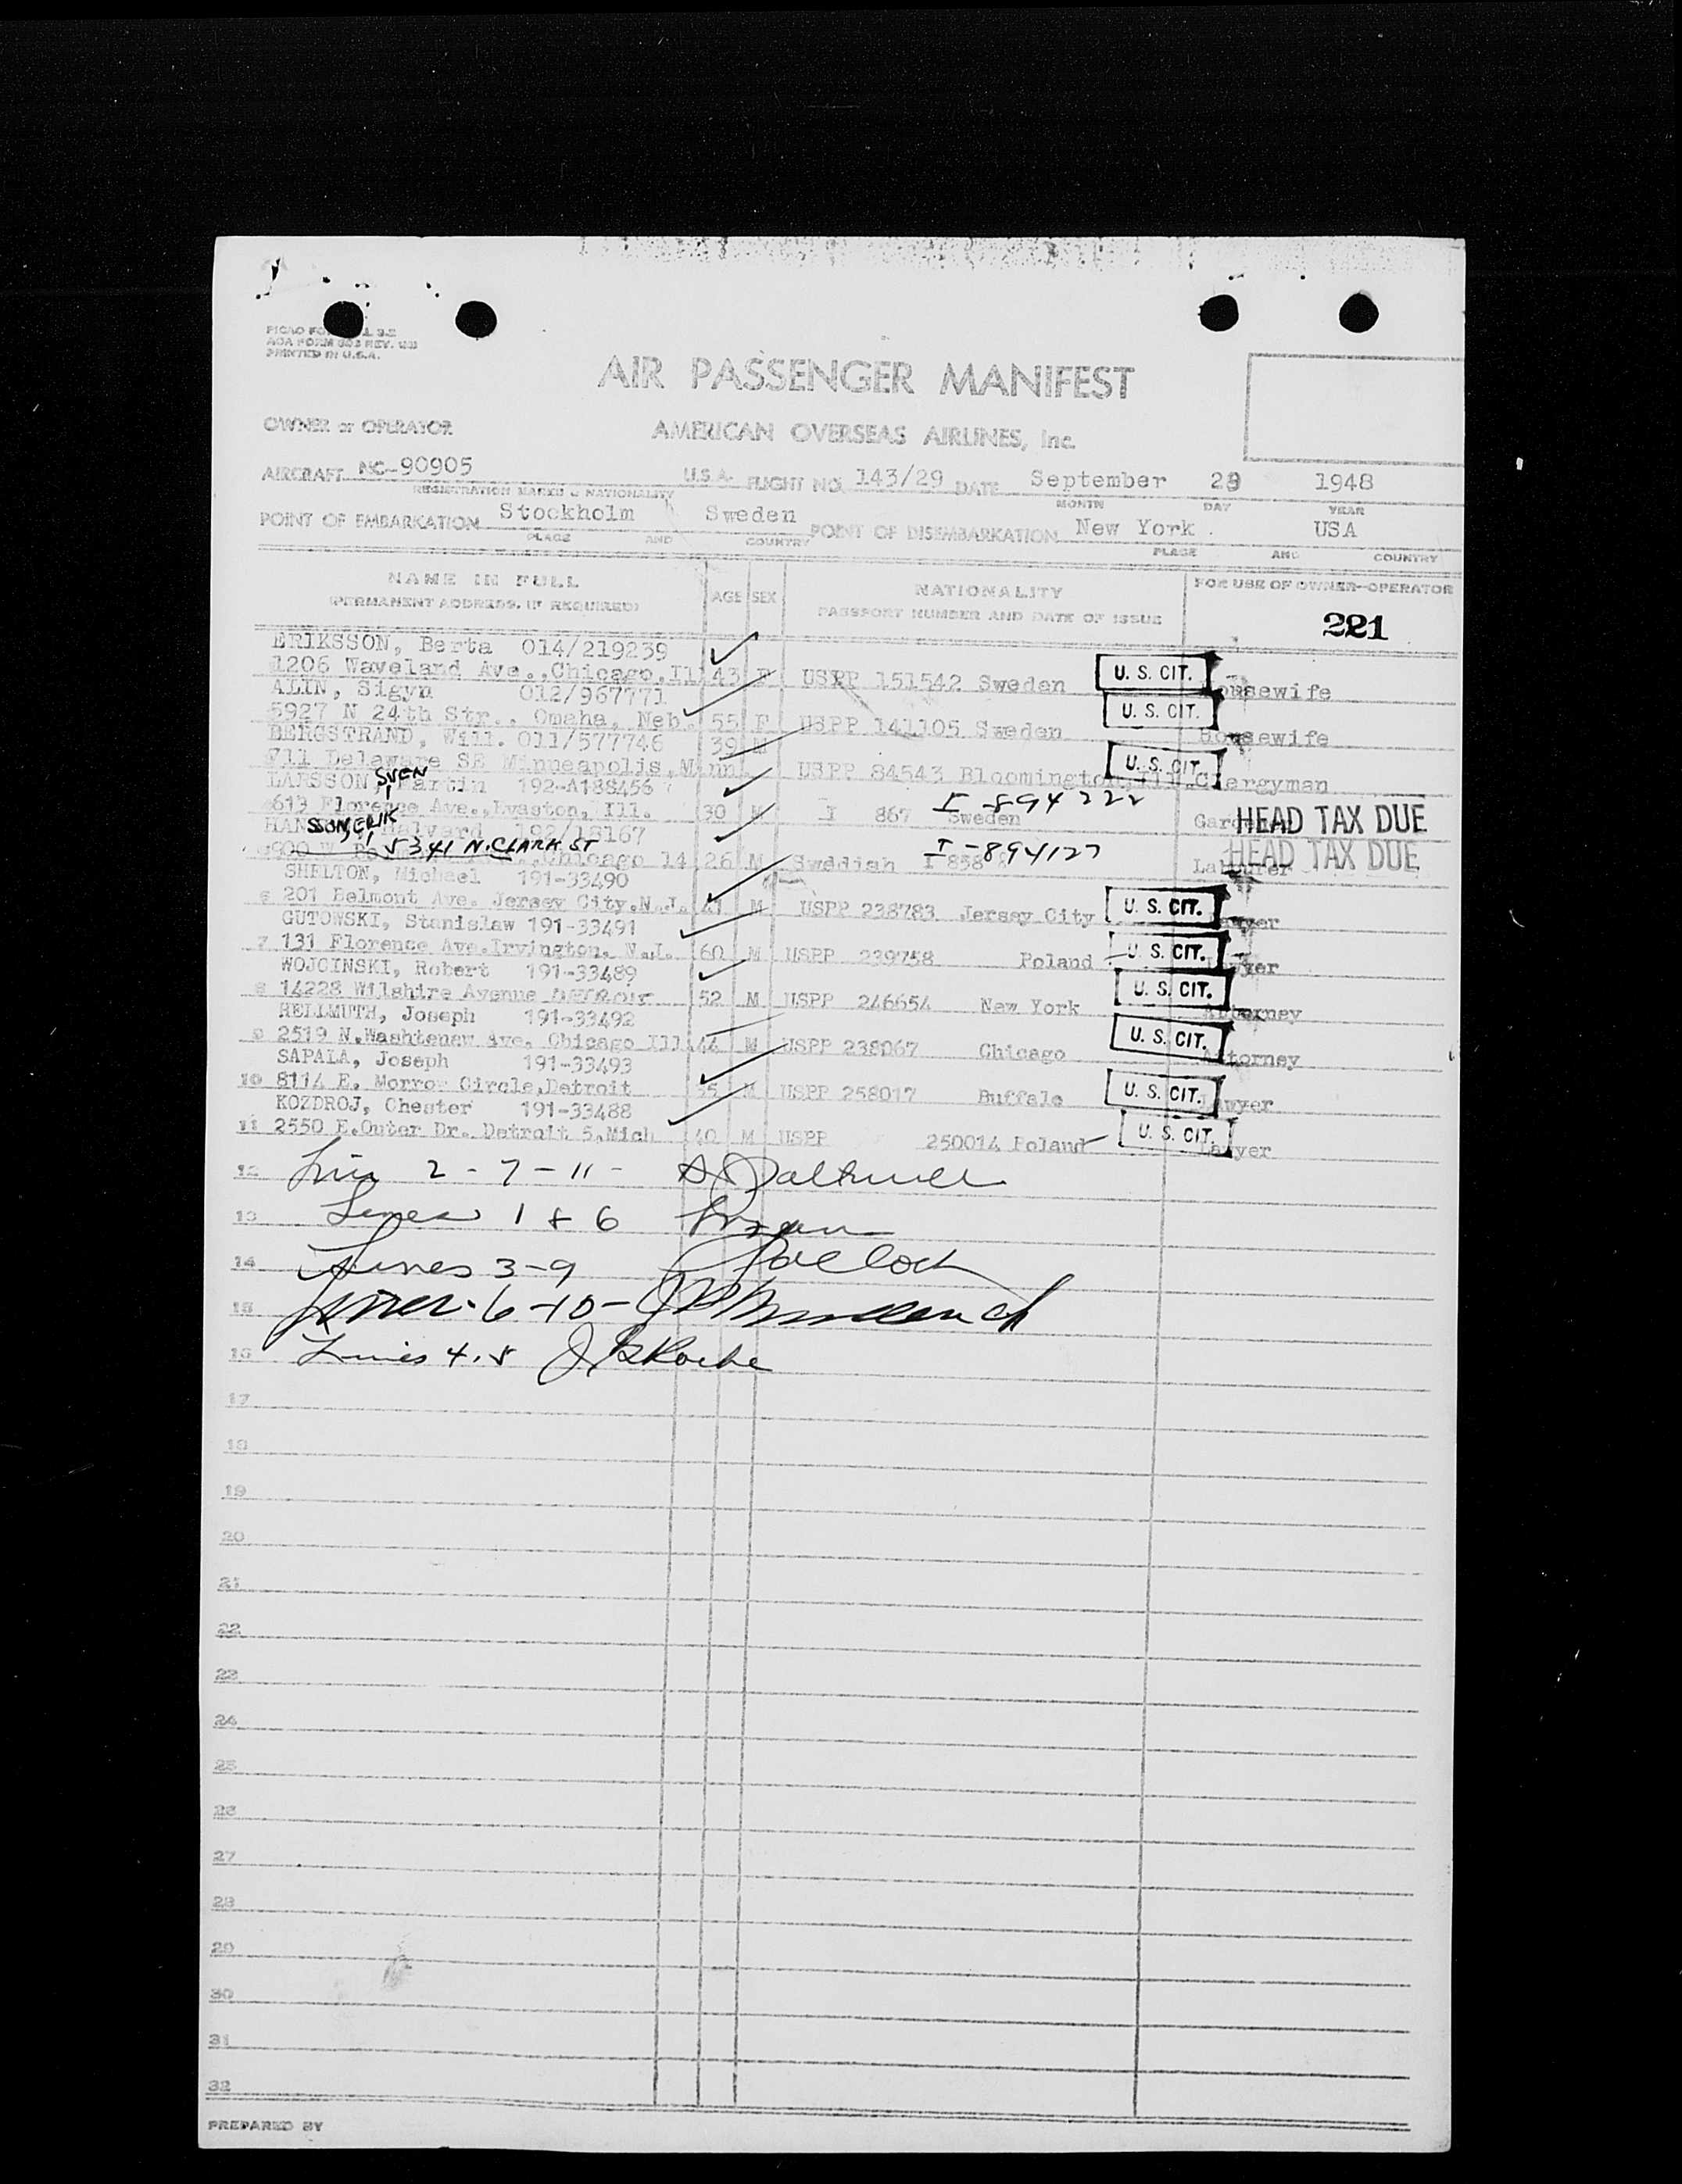 PICAO FO
AOA FORM 803 REV.
PRINTED IN U.S.A.
AIR PASSENGER MANIFEST
OWNER or OPERATOR AMERICAN OVERSEAS AIRLINES, Inc.
AIRCRAFT NC-90905 U.S.A. FLIGHT NO. 143/29 DATE September 29 1948
REGISTRATION MARKS & NATIONALITY MONTH DAY YEAR
POINT OF EMBARKATION Stockholm Sweden POINT OF DISEMBARKATION New York USA
PLACE AND COUNTRY PLACE AND COUNTRY
NAME IN FULL AGE SEX NATIONALITY FOR USE OF OWNER-OPERATOR
(PERMANENT ADDRESS, IF REQUIRED) PASSPORT NUMBER AND DATE OF ISSUE
221
ERIKSSON, Berta 014/219239
1206 Waveland Ave.,Chicago,Ill 43 F USPP 151542 Sweden U. S. CIT. Housewife
ALIN, Sigyn 012/967771
5927 N 24th Str., Omaha, Neb. 55 F USPP 141105 Sweden U. S. CIT. Housewife
BERGSTRAND, Will. 011/577746 39 M
711 Delaware SE Minneapolis,Minn. USPP 84543 Bloomington,Ill. U. S. CIT. Clergyman
LARSSON, SVEN Martin 192-A188456
613 Florence Ave.,Evaston, Ill. 30 M I 867 Sweden I-894222 HEAD TAX DUE
HANSSON, ERIK Halvard 192/18167
900 W 5341 N. CLARK ST ,Chicago 14 26 M Sweddish I 858 I-894127 Labourer HEAD TAX DUE
SHELTON, Michael 191-33490
6 201 Belmont Ave. Jersey City,N.J. 41 M USPP 238783 Jersey City U. S. CIT. Lawyer
GUTOWSKI, Stanislaw 191-33491
7 131 Florence Ave.Irvington, N.J. 60 M USPP 239758 Poland U. S. CIT. Lawyer
WOJCINSKI, Robert 191-33489
8 14228 Wilshire Avenue DETROIT 52 M USPP 246654 New York U. S. CIT. Attorney
RELLMUTH, Joseph 191-33492
9 2519 N.Washtenaw Ave. Chicago Ill 44 M USPP 238067 Chicago U. S. CIT. Attorney
SAPALA, Joseph 191-33493
10 8114 E. Morrow Circle,Detroit 55 M USPP 258017 Buffalo U. S. CIT. Lawyer
KOZDROJ, Chester 191-33488
11 2550 E.Outer Dr. Detroit 5,Mich 40 M USPP 250014 Poland U. S. CIT. Lawyer
12 Lin 2-7-11-
13 Lines 1 & 6
14 Lines 3-9 Pollock
15 Lines 6-10-
16 Lines 4.5
17
18
19
20
21
22
23
24
25
26
27
28
29
30
31
32
PREPARED BY